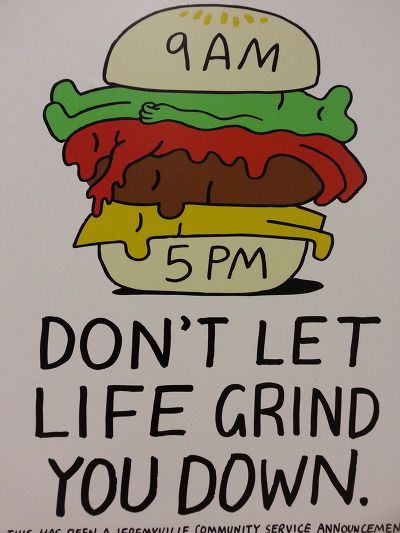 9 AM
5 PM
DON'T LET
LIFE GRIND
YOU DOWN.
THIS HAS BEEN A JEREMYVILLE COMMUNITY SERVICE ANNOUNCEMEN